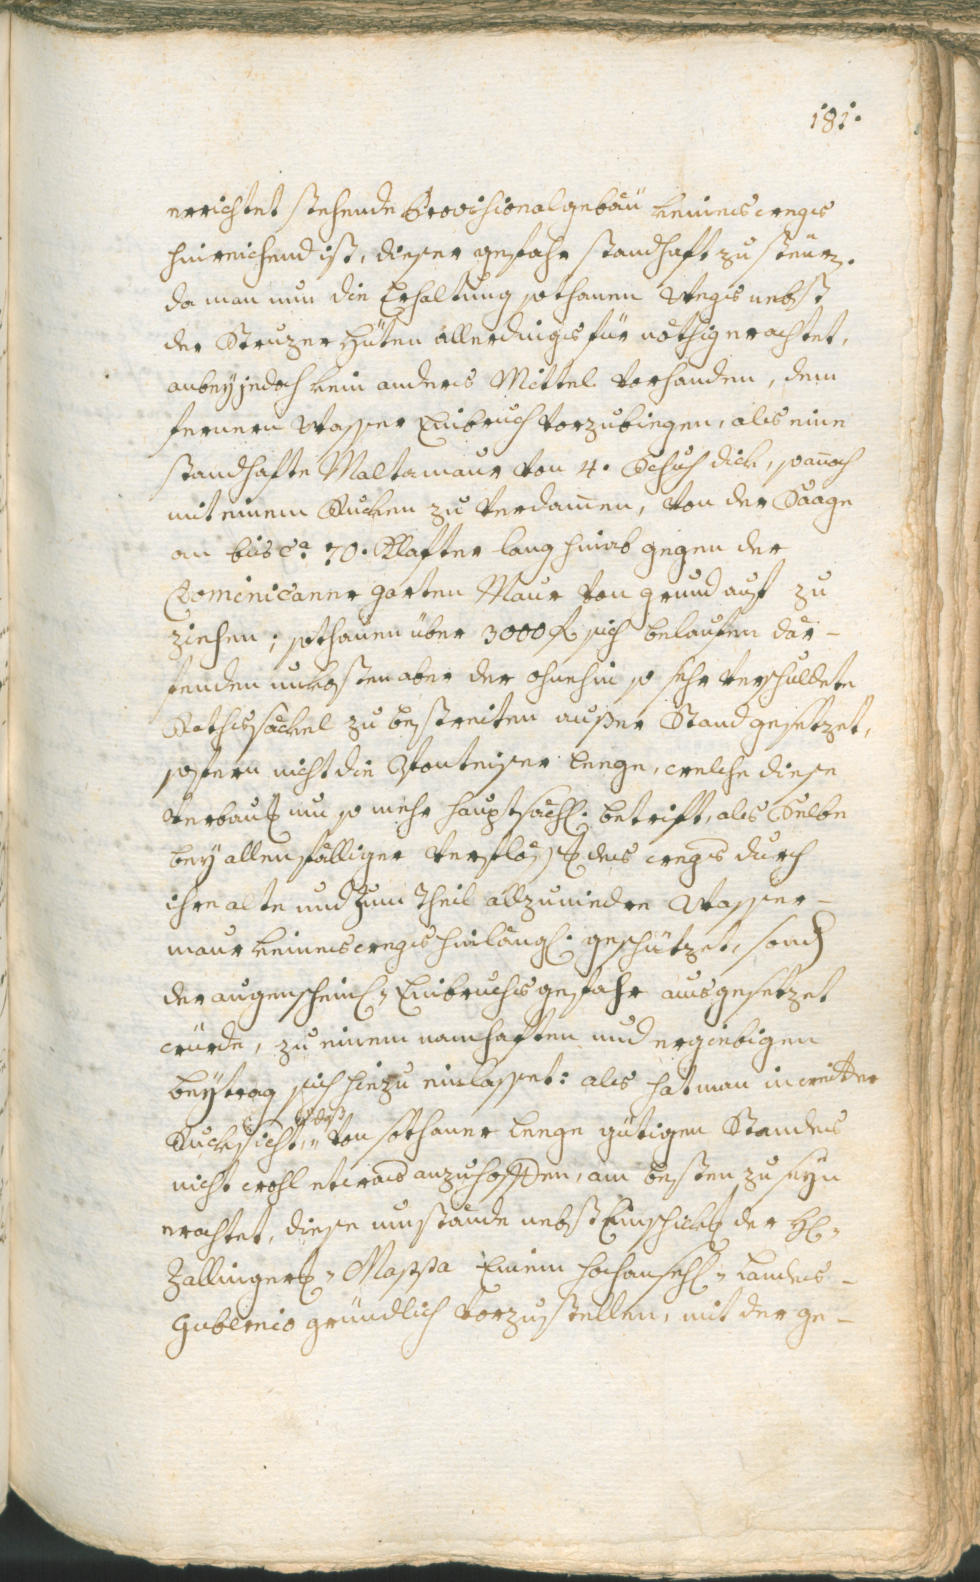 181.
errichtet stehende Provisionalgebäu keineswegs
hinreichend ist, dieser gefahr standhaft zu steürn.
da man nun die Erhaltung sothanen Wegs nebst
der Kreuzer Hüten allerdings für nöthig erachtet,
anbey jedoch kein anders Mittel vorhanden, dem
fernern Wasser Einbruch vorzubiegen, als eine
standhafte Maltamaur von 4. Schuh dick, so auch
mit einem Rucken zu verdamen, von der Saage
an bis ca. 70. Klafter lang hinab gegen der
Dominicaner garten Maur von grund auf zu
ziehen; sothanen über 3000 f sich belaufen där-
fenden unkosten aber der ohnehin so sehr verschuldete
Rathssäckel zu bestreiten außer Stand gesetzet,
sofern nicht die Wonteiser Lenge, welche diese
Verbauung um so mehr hauptsächl. betrift, als Selbe
bey allenfälliger Verflössung des wegs durch
ihre alte und zum Theil allzuniedre Wasser-
maur keineswegs hinlängl. geschützet, sond.
der augenscheinl. Einbruchsgefahr ausgesetzet
würde, zu einem namhaften und ergiebigen
beytrag sich hiezu einlasset: als hat man in weitter
Rucksicht, daß von sothaner Lenge gütigen Standes
nicht wohl etwas anzuhoffen, am besten zu seyn
erachtet, diese umstände nebst Einschickung der H.
Zallinger. Massa Einem hochansehl. Landes-
Gubernio gründlich vorzustellen, mit der ge-